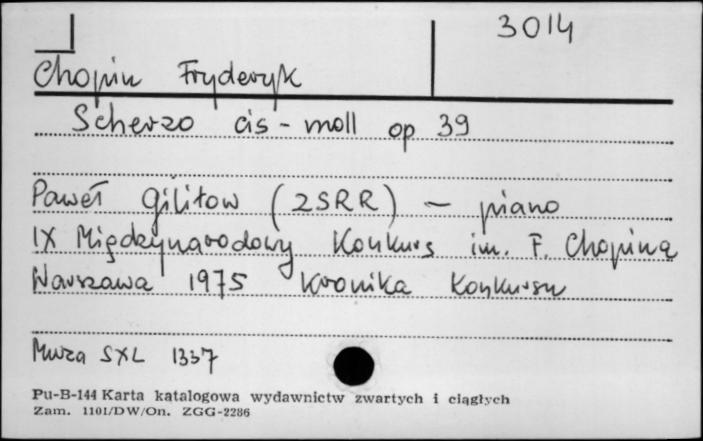 3014
Chopin Fryderyk
Scherzo cis-moll op 39
Paweł Giliłow (ZSRR) – piano
IX Międzynarodowy Konkurs im. F. Chopina
Warszawa 1975 Kronika Konkursu
Muza SXL 1337
Pu-B-144 Karta katalogowa wydawnictw zwartych i ciągłych
Zam. 1101/DW/On. ZGG-2286